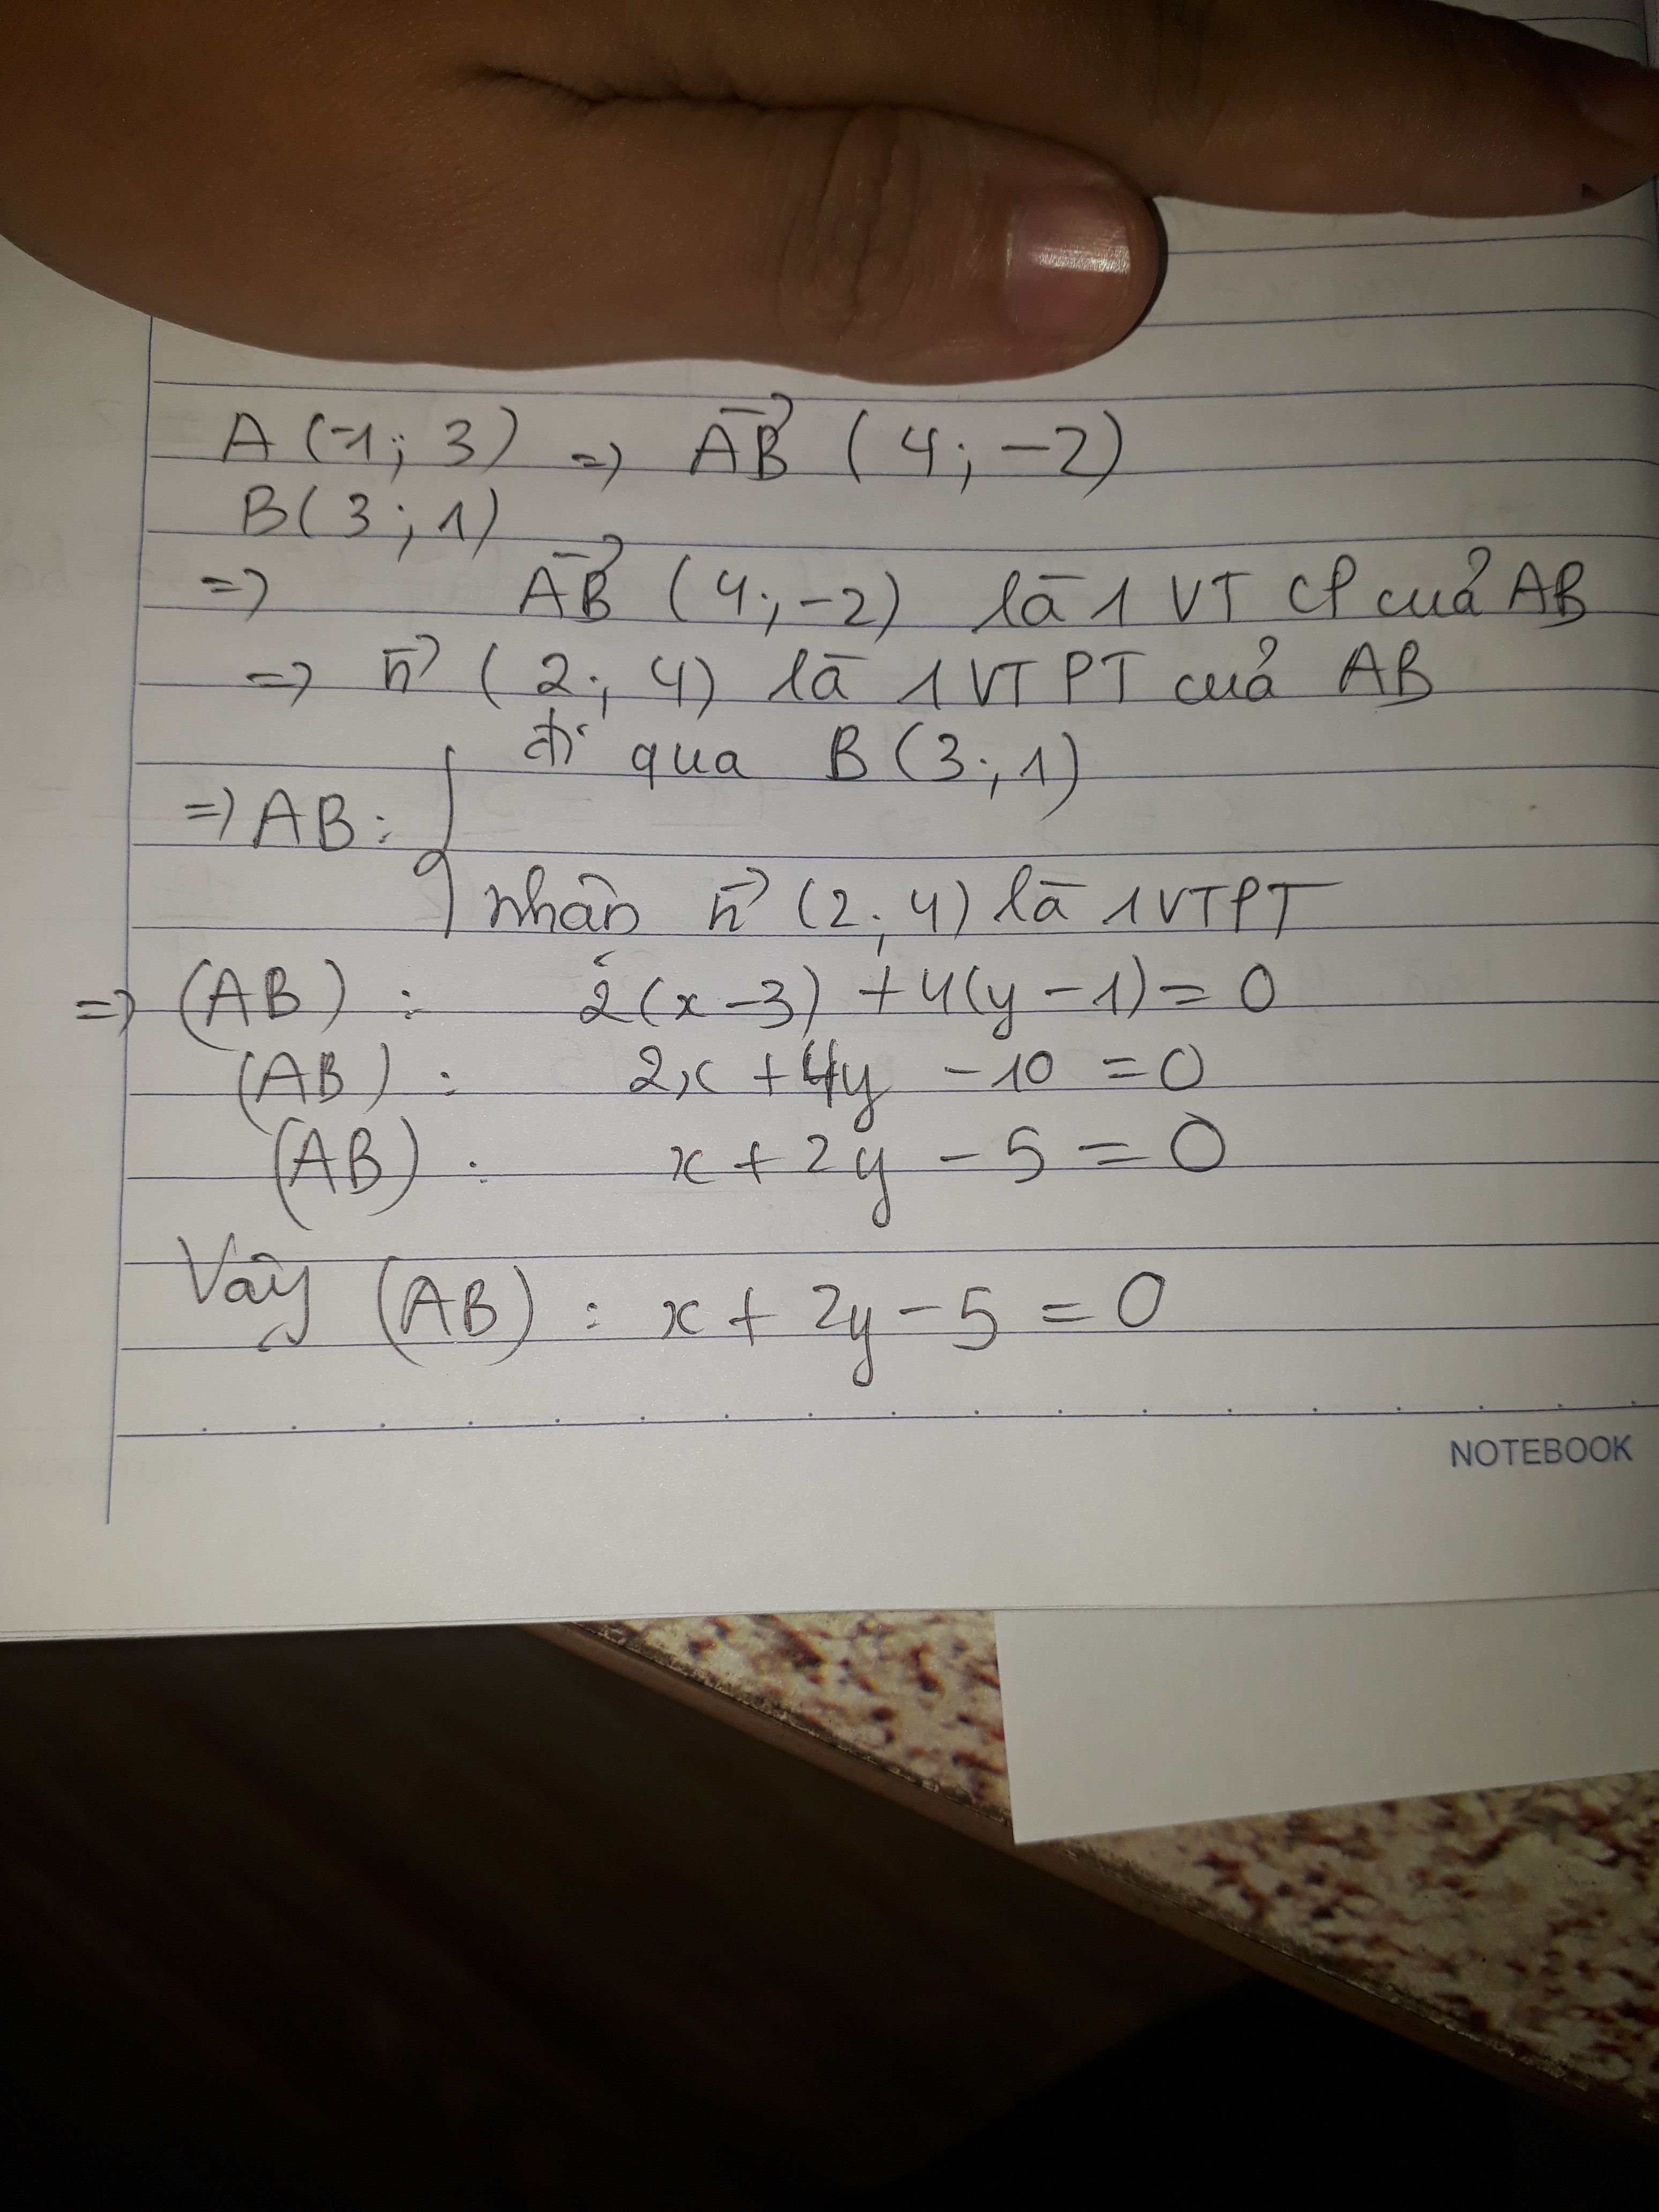 A(-1; 3) => AB→ (4; -2)
B(3; 1)
=> AB→ (4; -2) là 1 VT CP của AB
=> n→ (2; 4) là 1 VT PT của AB
đi qua B(3; 1)
=> AB: {
nhận n→ (2; 4) là 1 VTPT
=> (AB) : 2(x-3) + 4(y-1) = 0
(AB) : 2x + 4y - 10 = 0
(AB) : x + 2y - 5 = 0
Vậy (AB) : x + 2y - 5 = 0
NOTEBOOK